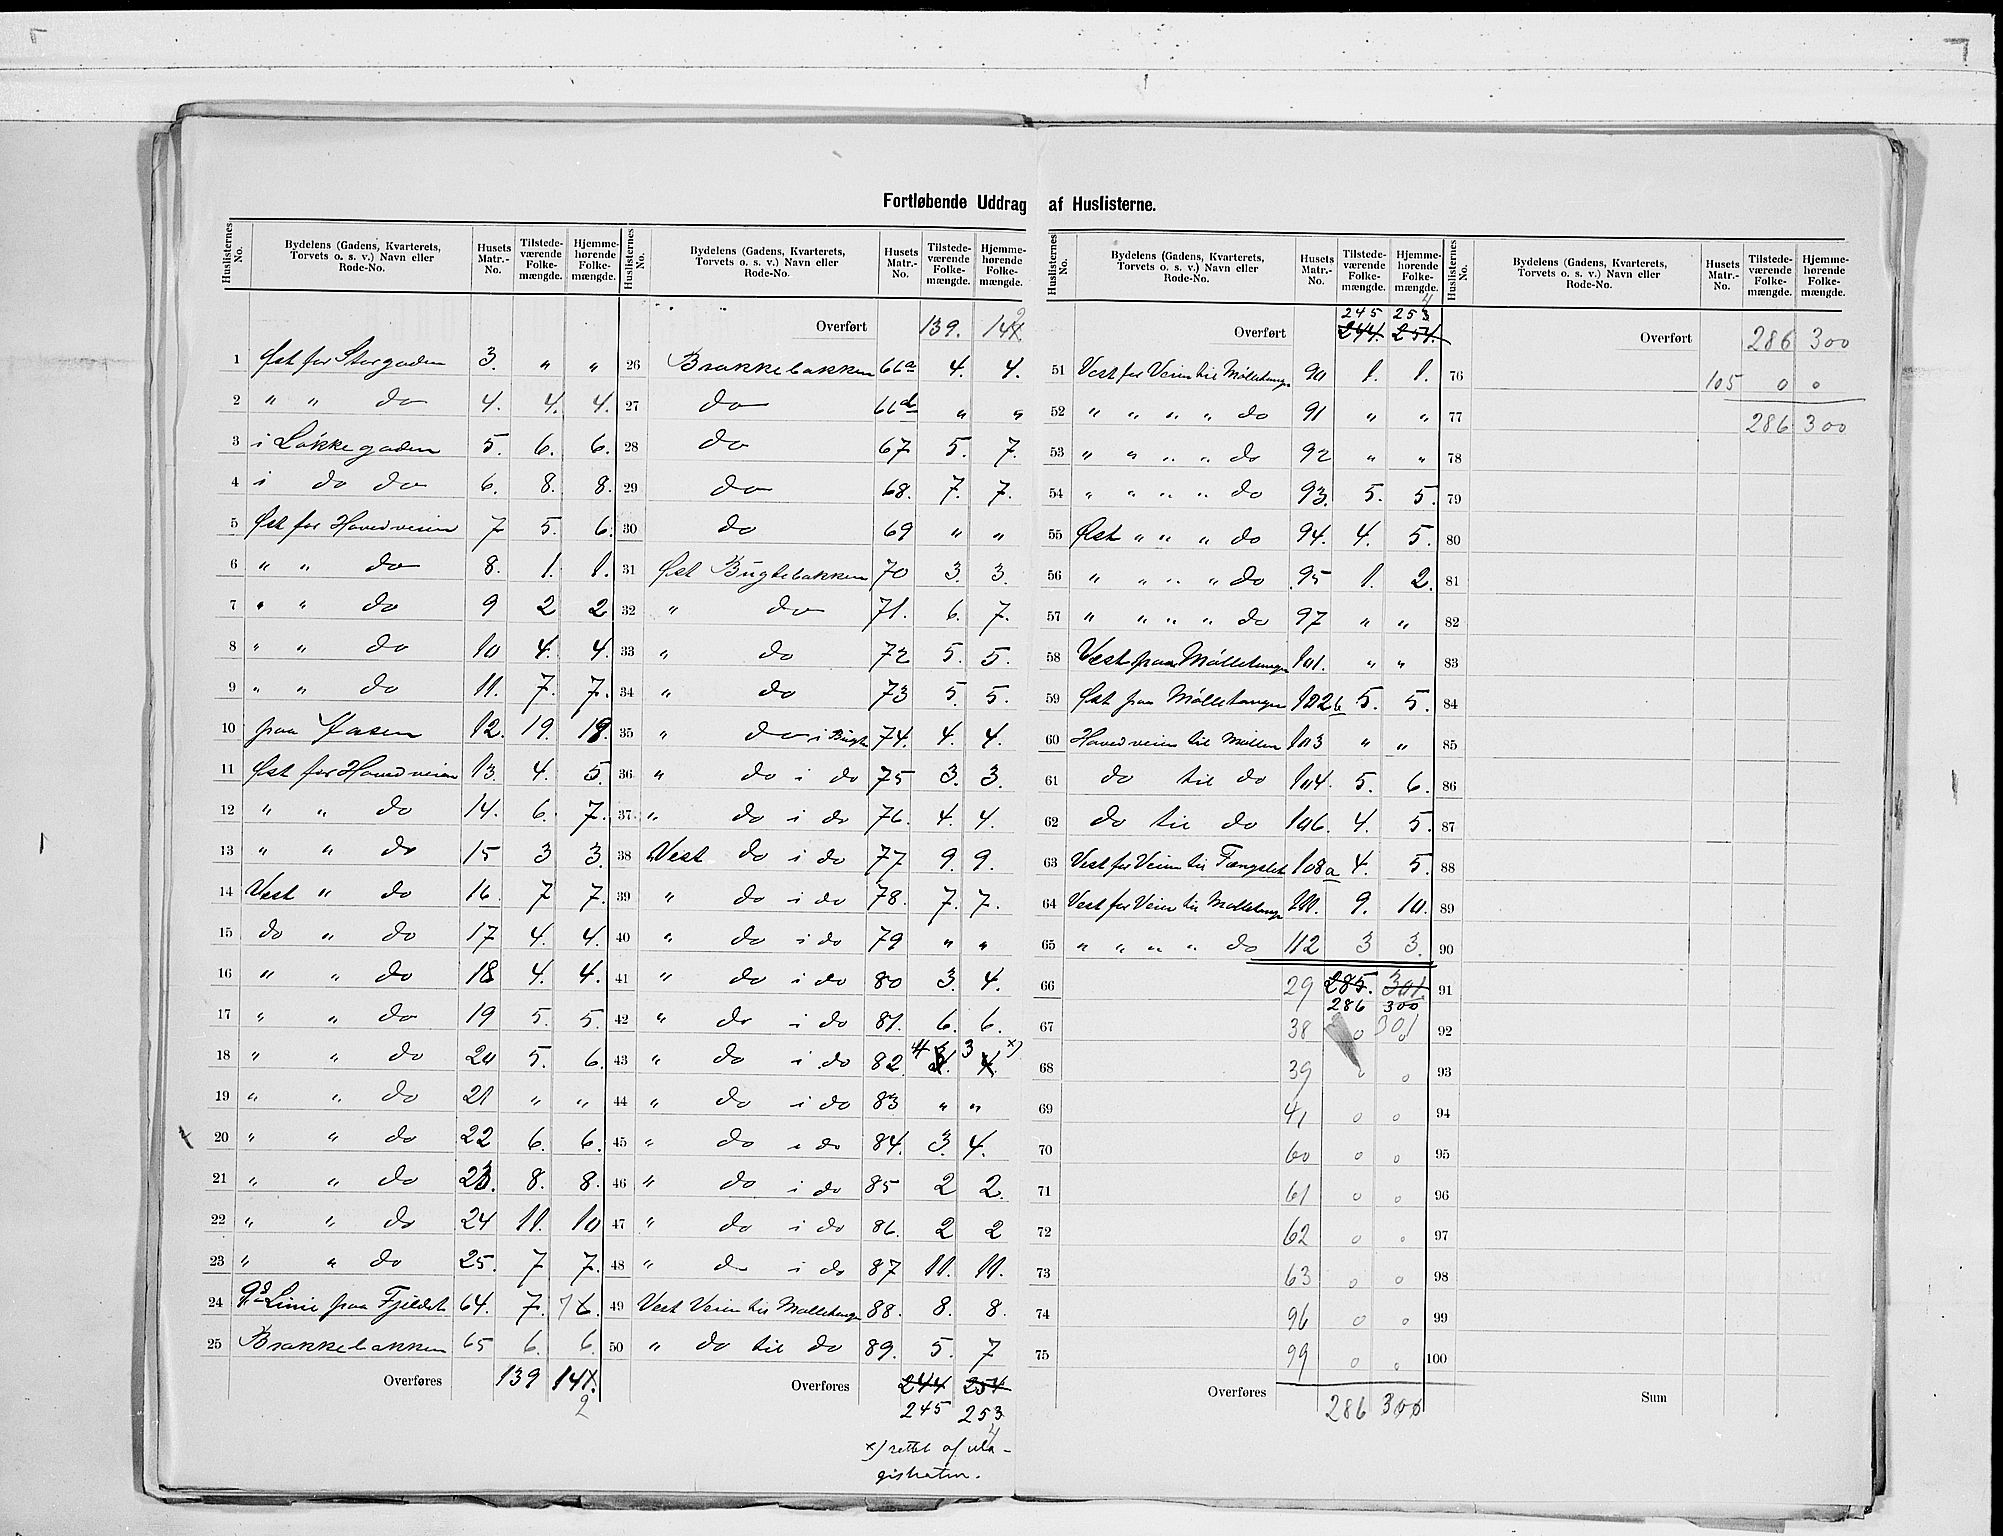 Fortløbende Uddrag af Huslisterne.
Huslisternes No. | Bydelens (Gadens, Kvarterets, Torvets o. s. v.) Navn eller Rode-No. | Husets Matr.-No. | Tilstede-værende Folke-mængde. | Hjemme-hørende Folke-mængde.
1 Øst for Storgaden 3. „ „
2 „ „ do 4. 4. 4.
3 i Løkkegaden 5. 6. 6.
4 i do do 6. 8. 8.
5 Øst for Hovedveien 7 5. 6.
6 „ „ do 8. 1. 1.
7 „ „ do 9 2 2
8 „ „ do 10 4. 4.
9 „ „ do 11. 7. 7.
10 paa 12. 19. 18.
11 Øst for Hovedveien 13. 4. 5.
12 „ „ do 14. 6. 7.
13 „ „ do 15 3 3.
14 Vest „ do 16. 7 7.
15 do „ do 17 4. 4.
16 „ „ do 18 4. 4.
17 „ „ do 19 5. 5.
18 „ „ do 20 5. 6.
19 „ „ do 21 „ „
20 „ „ do 22 6. 6.
21 „ „ do 23. 8. 8.
22 „ „ do 24 11. 10
23 „ „ do 25. 7 7.
24 Linie paa 64. 7. 7
25 Brakkebakken 65 6. 6.
Overføres 139 141. 2
Huslisternes No. | Bydelens (Gadens, Kvarterets, Torvets o. s. v.) Navn eller Rode-No. | Husets Matr.-No. | Tilstede-værende Folke-mængde. | Hjemme-hørende Folke-mængde.
Overført 139. 142
26 Brakkebakken 66a 4. 4.
27 do 66d „ „
28 do 67 5. 7.
29 do 68. 7. 7.
30 do 69 „ „
31 Øst Bugtebakken 70 3. 3.
32 „ do 71. 6. 7.
33 „ do 72 5. 5.
34 „ do 73 5. 5.
35 „ do i Bugta 74. 4. 4.
36 „ do i do 75 3. 3.
37 „ do i do 76. 4. 4.
38 Vest do i do 77 9. 9.
39 „ do i do 78. 7. 7.
40 „ do i do 79 „ „
41 „ do i do 80 3. 4.
42 „ do i do 81. 6. 6.
43 „ do i do 82. 4 3 4. x)
44 „ do i do 83 „ „
45 „ do i do 84. 3. 4.
46 „ do i do 85 2 2.
47 „ do i do 86. 2 2
48 „ do i do 87 11. 11.
49 Vest Veien til Mølletangen 88. 8. 8.
50 „ do til do 89. 5. 7
Overføres 244 254
245 253
4
x) rettet af Ma-
gistraten.
Huslisternes No. | Bydelens (Gadens, Kvarterets, Torvets o. s. v.) Navn eller Rode-No. | Husets Matr.-No. | Tilstede-værende Folke-mængde. | Hjemme-hørende Folke-mængde.
4
245 253
Overført 244. 254.
51 Vest for Veien til Mølletangen 90 1. 1.
52 „ „ „ „ do 91 „ „
53 „ „ „ „ do 92 „ „
54 „ „ „ „ do 93. 5. 5.
55 Øst „ „ „ do 94. 4. 5.
56 „ „ „ „ do 95 1. 2.
57 „ „ „ „ do 97 „ „
58 Vest paa Mølletangen 101. „ „
59 Øst paa Mølletangen 102b 5. 5.
60 Hovedveien til Møllen 103 „ „
61 do til do 104. 5. 6.
62 do til do 106. 4. 5.
63 Vest for Veien til Fængslet 108a 4. 5.
64 Vest for Veien til Mølletangen 111. 9. 10.
65 „ „ „ „ do 112 3 3.
66 29 285. 301.
286 300
67 38 0 301
68 39 0 0
69 41 0 0
70 60 0 0
71 61 0 0
72 62 0 0
73 63 0 0
74 96 0 0
75 99 0 0
Overføres 286 300
Huslisternes No. | Bydelens (Gadens, Kvarterets, Torvets o. s. v.) Navn eller Rode-No. | Husets Matr.-No. | Tilstede-værende Folke-mængde. | Hjemme-hørende Folke-mængde.
Overført 286 300
76 105 0 0
77 286 300
78
79
80
81
82
83
84
85
86
87
88
89
90
91
92
93
94
95
96
97
98
99
100
Sum